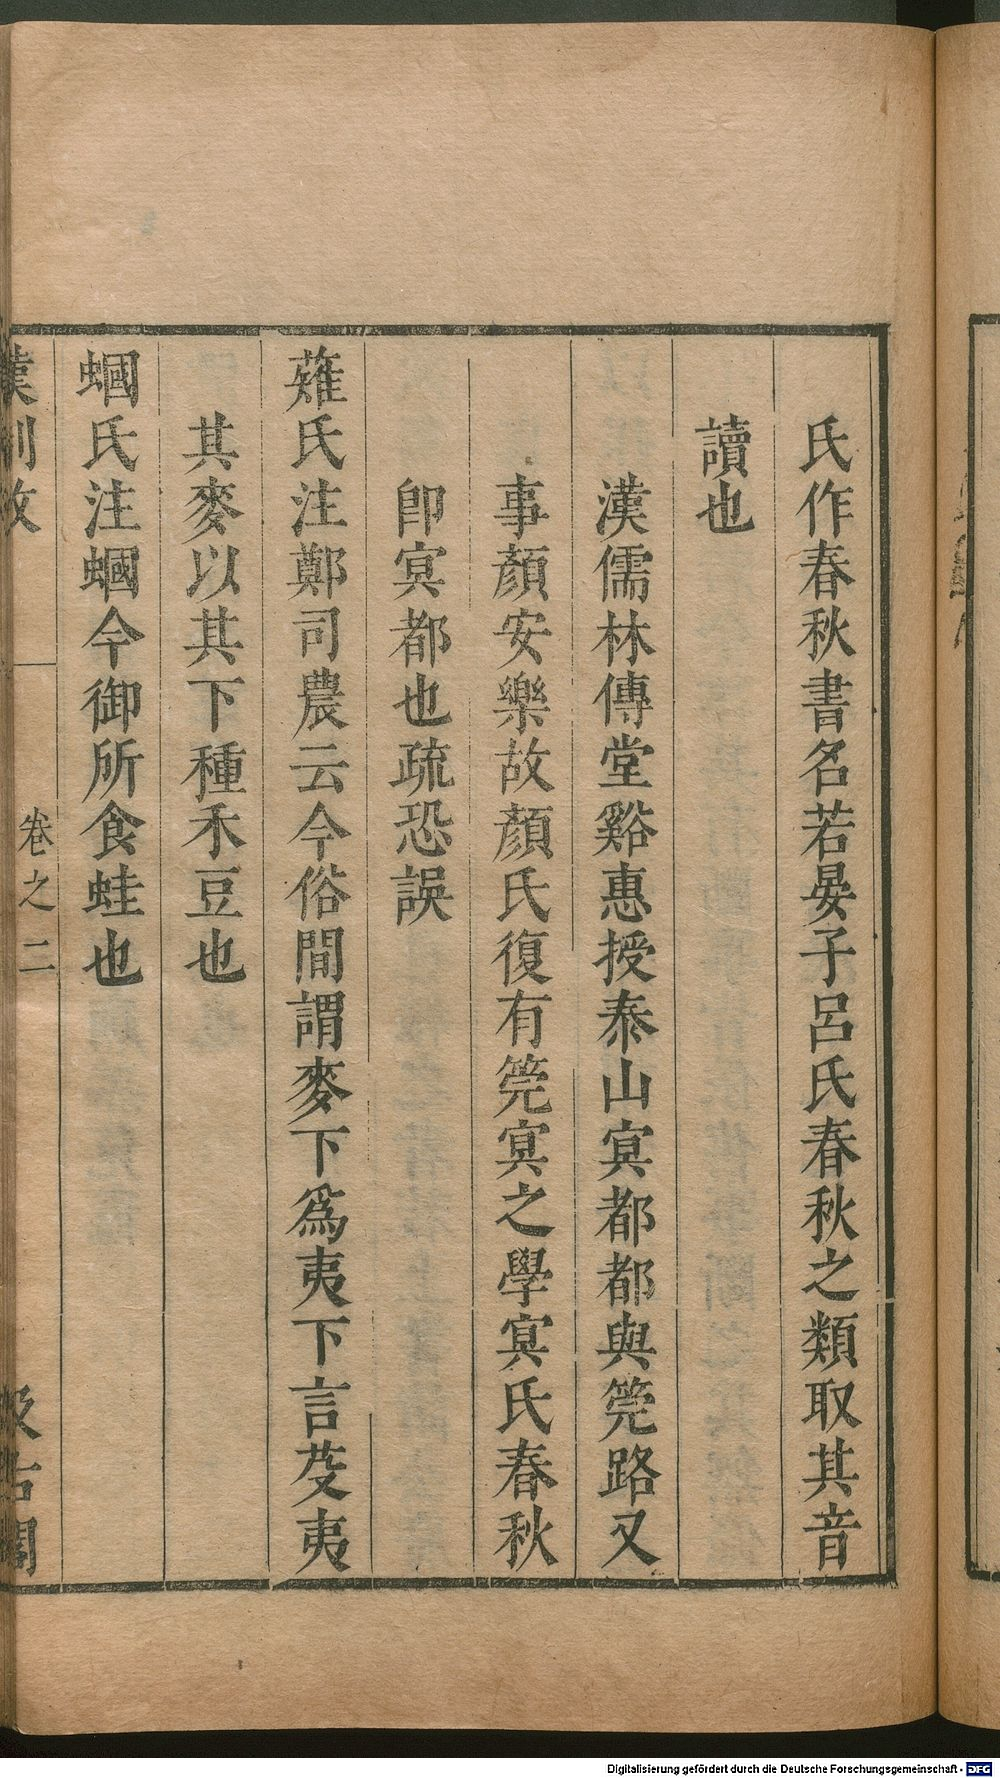 氏作春秋書名若晏子呂氏春秋之類取其音
讀也
漢儒林傳堂谿惠授泰山冥都都與筦路又
事顏安樂故顏氏復有筦冥之學冥氏春秋
卽冥都也疏恐誤
薙氏注鄭司農云今俗間謂麥下爲夷下言芟夷
其麥以其下種禾豆也
蟈氏注蟈今御所食蛙也
漢制攷
卷之二
汲古閣
Digitalisierung gefördert durch die Deutsche Forschungsgemeinschaft - DFG